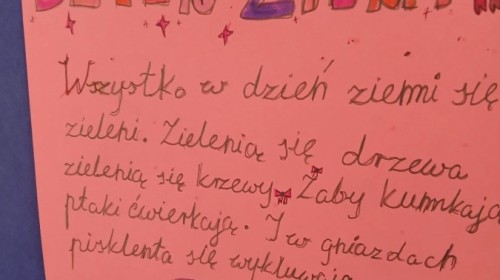 DZIEŃ ZIEMI
Wszystko w dzień ziemi się
zieleni. Zielenią się drzewa
zielenią się krzewy. Żaby kumkają
ptaki ćwierkają. I w gniazdach
pisklenta się wykluwają